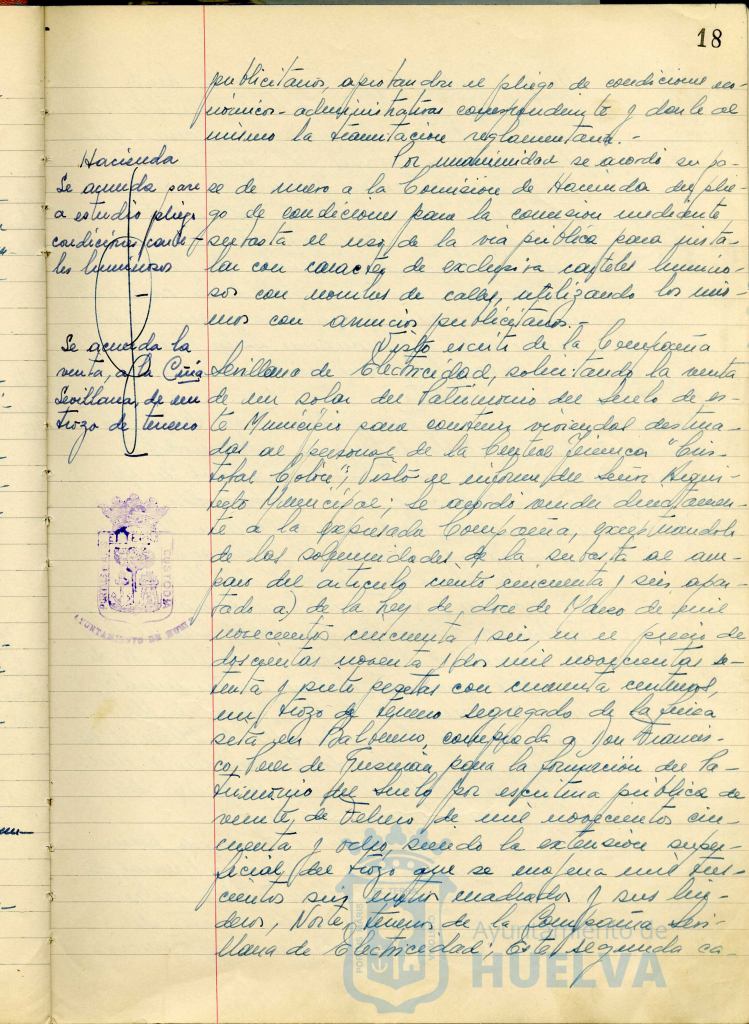 18
publicitarios, aprobandose el pliego de condiciones eco-
nómicos-administrativas correspondiente y darle al
mismo la tramitacion reglamentaria.-
Hacienda
Se acuerda pase
a estudio pliego
condiciones carte-
les luminosos
Por unanimidad se acordó su pa-
se de nuevo a la Comisión de Hacienda del plie-
go de condiciones para la concesion mediante
subasta el uso de la via pública para insta-
lar con caracter de exclusiva carteles lumino-
sos con nombres de calles, utilizando los mis-
mos con anuncios publicitarios.-
Se acuerda la
venta, a la Cñia
Sevillana, de un
trozo de terreno
Visto escrito de la Compañia
Sevillana de Electricidad, solicitando la venta
de un solar del Patrimonio del Suelo de es-
te Municipio para construir viviendas destina-
das al personal de la Central Termica "Cris-
tobal Colón"; Visto el informe del Señor Arqui-
tecto Municipal; se acordó vender directamen-
te a la expresada Compañia, exceptuandola
de las solemnidades de la subasta al am-
paro del articulo ciento cincuenta y seis apar-
tado a) de la Ley de, doce de Mayo de mil
novecientos cincuenta y seis, en el precio de
doscientas noventa y dos mil novecientas se-
tenta y siete pesetas con cincuenta centimos,
un trozo de terreno segregado de la finca
seta en Balbueno, comprada a Don Francis-
co, Perez de Guzmán, para la formación del Pa-
trimonio del Suelo por escritura pública de
veinte, de Febrero de mil novecientos cin-
cuenta y ocho, siendo la extensión super-
ficial, del trozo que se enajena mil tres-
cientos seis metros cuadrados y sus lin-
deros, Norte, terrenos de la Compañia Sevi-
llana de Electricidad; Este, segunda ca-
AYUNTAMIENTO DE HUELVA
Ayuntamiento de
HUELVA